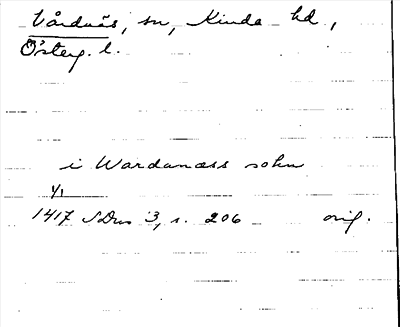 Vårdnäs, sn, Kinda hd,
Österg. l.
i Wardanæss sokn
4/1
1417 SDns 3, s. 206 orig.